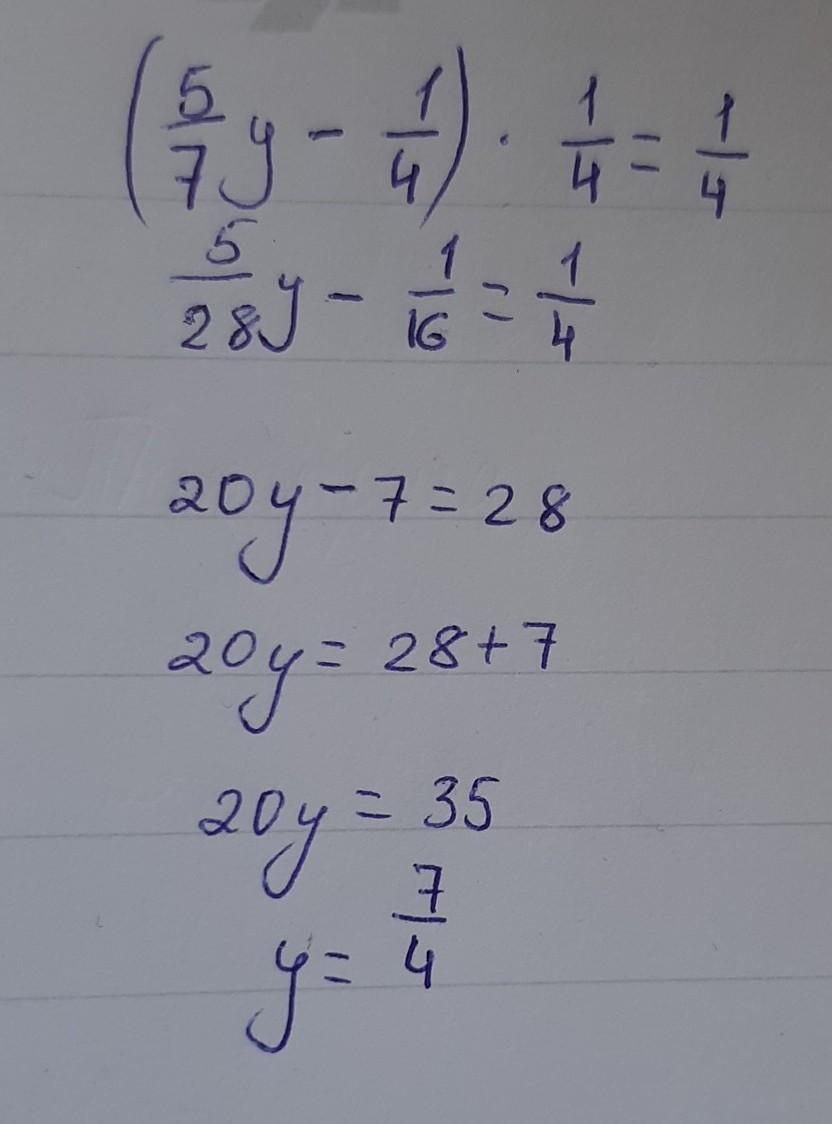 (5/7 y - 1/4) · 1/4 = 1/4
5/28 y - 1/16 = 1/4
20y - 7 = 28
20y = 28 + 7
20y = 35
y = 7/4